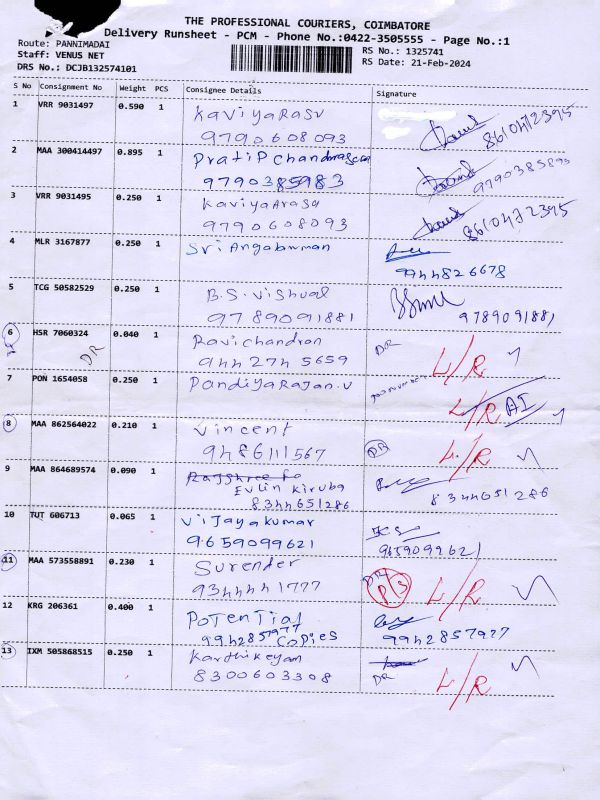 THE PROFESSIONAL COURIERS, COIMBATORE
Delivery Runsheet - PCM - Phone No.:0422-3505555 - Page No.:1
Route: PANNIMADAI
Staff: VENUS NET
DRS No.: DCJB132574101
RS No.: 1325741
RS Date: 21-Feb-2024
S No Consignment No Weight PCS Consignee Details Signature
1 VRR 9031497 0.590 1 KaviyaRasu
9790608093 8610472395
2 MAA 300414497 0.895 1 Pratip Chandrasekar
9790385983 9790385893
3 VRR 9031495 0.250 1 KaviyaArasu
9790608093 8610472395
4 MLR 3167877 0.250 1 Sri Angalamman
9944826678
5 TCG 50582529 0.250 1 B.S. Vishual
9789091881 9789091881
6 HSR 7060324 0.040 1 Ravichandran DR
DR 9442745659 L/R
7 PON 1654058 0.250 1 PandiyaRajan.V
L/R AI
8 MAA 862564022 0.210 1 Vincent
9486111567 L/R
9 MAA 864689574 0.090 1 Rajshree
Evlin Kiruba
8344651286 8344651286
10 TUT 606713 0.065 1 Vijayakumar
9659099621 9659099621
11 MAA 573558891 0.230 1 Surender
9344441777 L/R
12 KRG 206361 0.400 1 Potential
9942857977 Copies 9942857977
13 IXM 505868515 0.250 1 Karthikeyan
8300603308 DR L/R